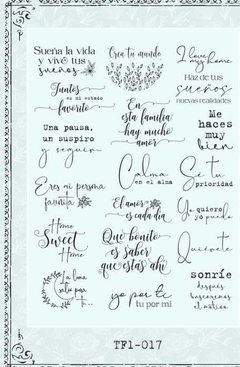 Sueña la vida
y vive tus
sueños
Crea tu mundo
I love
my home
Juntos
es mi estado
favorito
Haz de tus
sueños
nuevas realidades
Una pausa,
un suspiro
y seguir
En
esta familia
hay mucho
amor
Me
haces
muy
bien
Eres mi persona
favorita
Calma
en el alma
Sé tu
prioridad
El amor
es cada día
Yo quiero,
yo puedo
Home
Sweet
Home
Qué bonito
es saber
que estás ahí
Quiérete
La luna
salió para
ti...
yo por ti
tu por mi
sonríe
después
buscaremos
el motivo
TF1-017